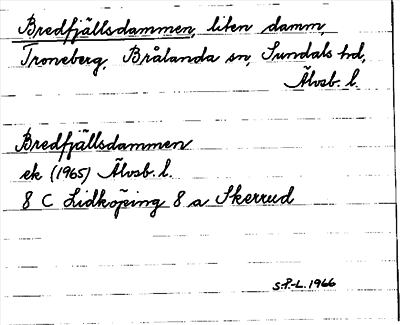 Bredfjällsdammen, liten damm,
Troneberg, Brålanda sn, Sundals hd,
Älvsb. l.
Bredfjällsdammen
ek (1965) Älvsb. l.
8 C Lidköping 8 a Skerrud
S.P-L. 1966